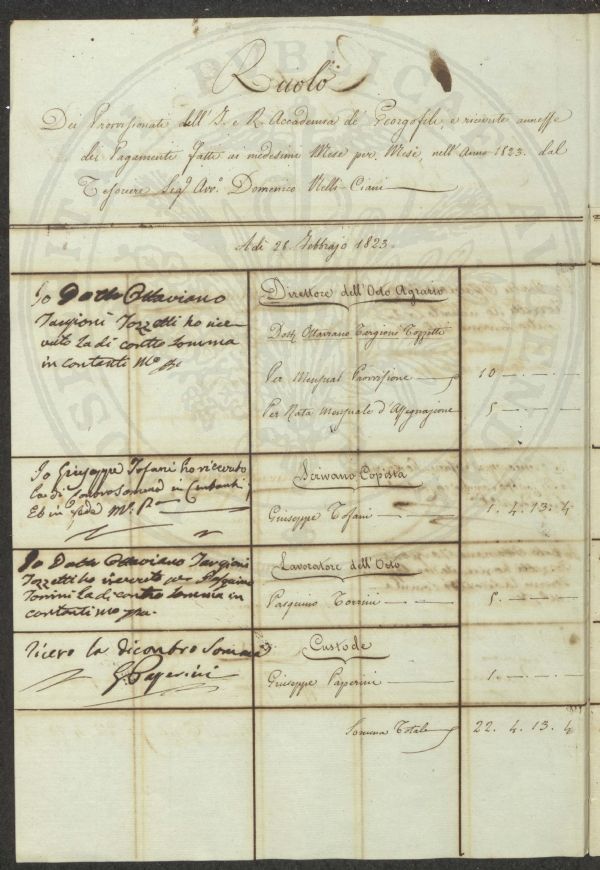 Ruolo
Dei Provvisionati dell'I. e R. Accademia de' Georgofili, e ricevute annesse
dei Pagamenti fatti ai medesimi Mese per Mese, nell'Anno 1823. dal
Tesoriere Sig.e Avv.o Domenico Nelli-Ciani
A dì 28. Febbrajo 1823.
Io Dott. Ottaviano
Targioni Tozzetti ho rice-
vuto la di contro somma
in contanti M.o
Direttore dell'Orto Agrario
Dott. Ottaviano Targioni Tozzetti
Per Mensual Provvisione 10 — — —
Per Rata Mensuale d'Assegnazione 5 — — —
Io Giuseppe Tofani ho ricevuto
la di contro Somma in Contanti
Ed in fede M.o P.o
Scrivano Copista
Giuseppe Tofani 1. 4. 13. 4
Io Dott. Ottaviano Targioni
Tozzetti ho ricevuto per Pasquino
Torrini la di contro somma in
contanti mo ppa.
Lavoratore dell'Orto
Pasquino Torrini 5. — — —
Ricevo la dicontro Somma
G. Paperini
Custode
Giuseppe Paperini 1. — — —
Somma Totale 22. 4. 13. 4